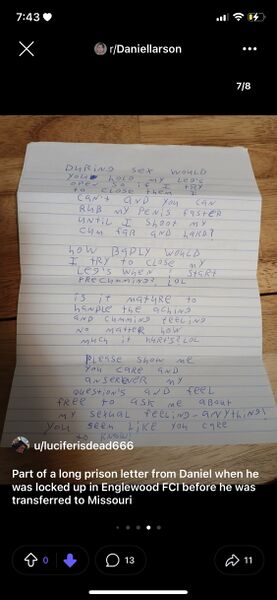 7:43
r/Daniellarson
7/8
DURING SEX WOULD
YOU HOLD MY LEG'S
OPEN SO IF I TRY
TO CLOSE THEM I
CAN'T AND YOU CAN
RUB MY PENIS FASTER
UNTIL I SHOOT MY
CUM FAR AND HARD?
HOW BADLY WOULD
I TRY TO CLOSE MY
LEG'S WHEN I START
PRECUMMING LOL
IS IT MATURE TO
HANDLE THE ACHING
AND CUMMING FEELING
NO MATTER HOW
MUCH IT HURTS LOL
PLEASE SHOW ME
YOU CARE AND
ANSERWER MY
QUESTION'S AND FEEL
FREE TO ASK ME ABOUT
MY SEXUAL FEELING-ANYTHING!
YOU SEEM LIKE YOU CARE
TO KNOW!
u/luciferisdead666
Part of a long prison letter from Daniel when he
was locked up in Englewood FCI before he was
transferred to Missouri
0
13
11